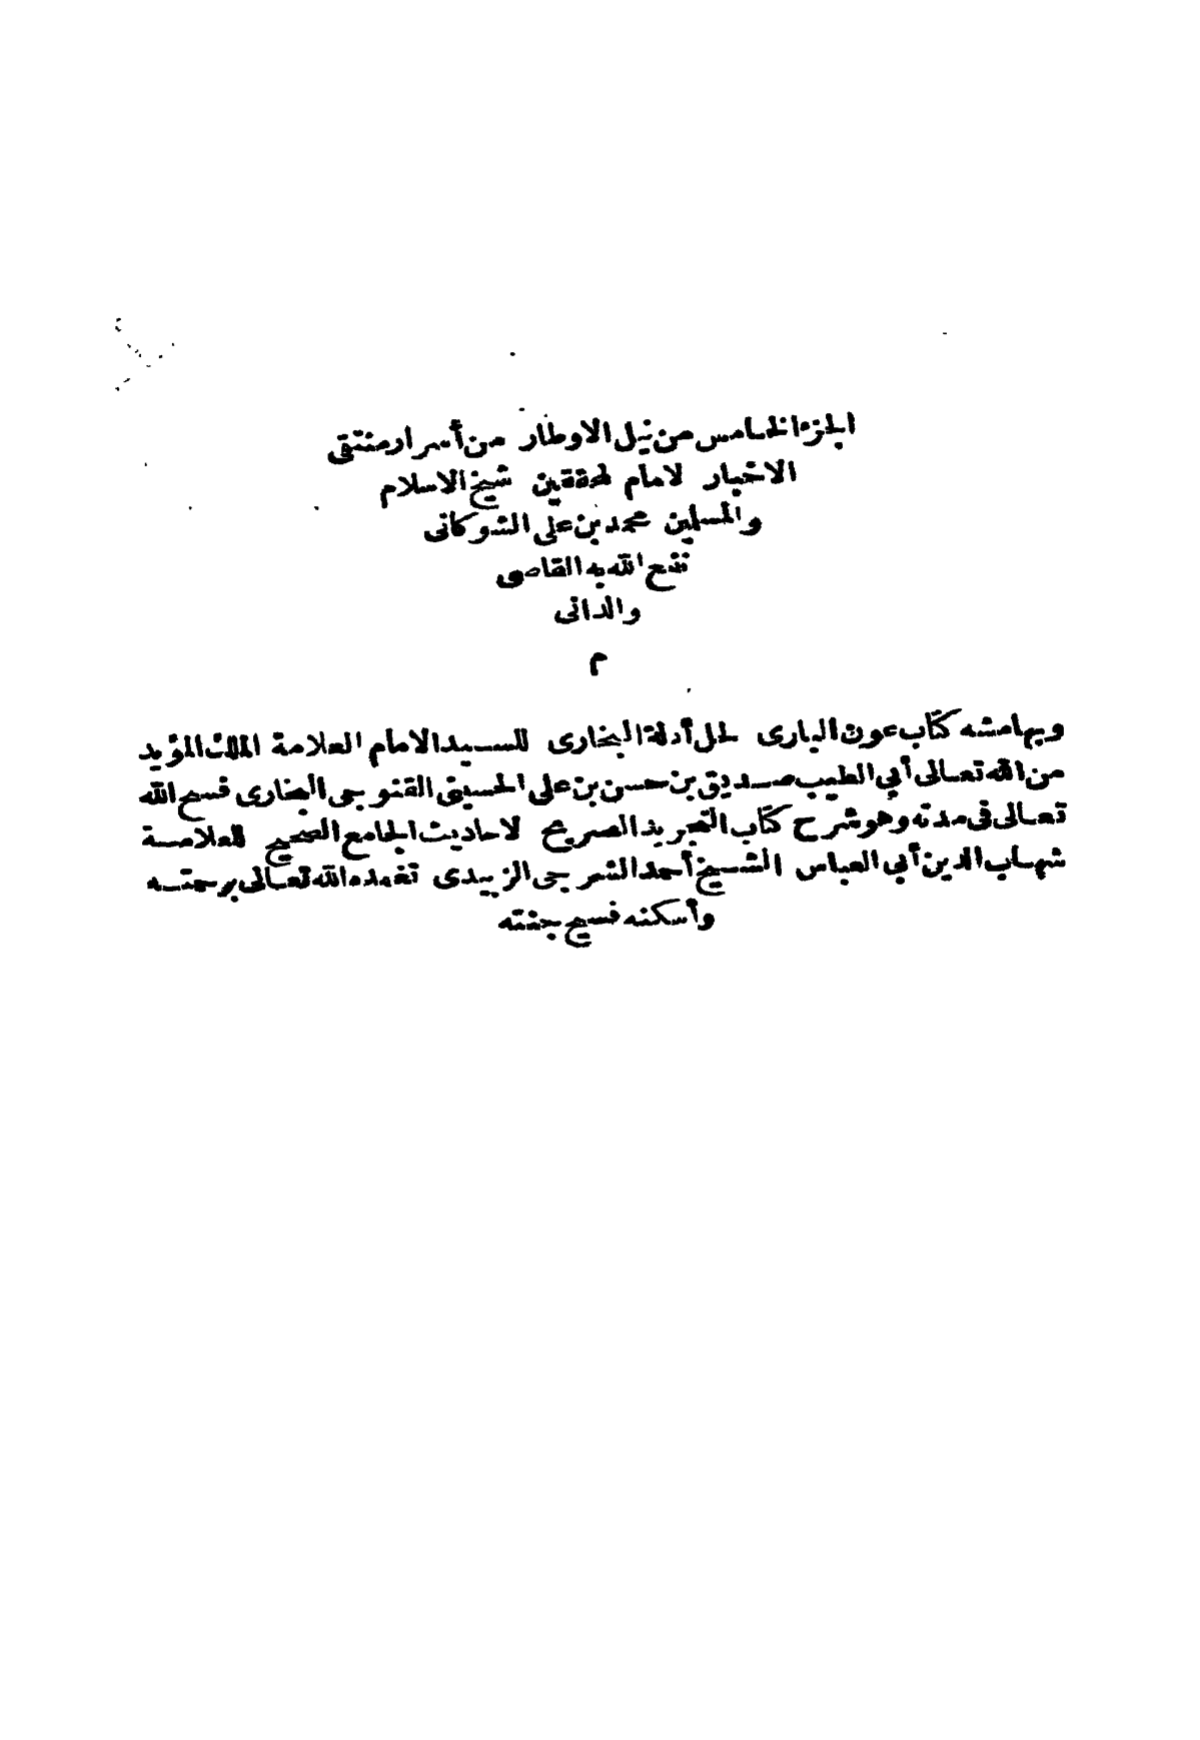 الجزء الخامس من نيل الاوطار من أسرار منتقى
الاخبار لامام المحققين شيخ الاسلام
والمسلمين محمد بن على الشوكانى
نفع الله به القاصى
والدانى
م
وبهامشه كتاب عون البارى لحل أدلة البخارى للسيد الامام العلامة الملك المؤيد
من الله تعالى أبي الطيب صديق بن حسن بن على الحسينى القنوجى البخارى فسح الله
تعالى فى مدته وهو شرح كتاب التجريد الصريح لاحاديث الجامع الصحيح للعلامة
شهاب الدين أبي العباس الشيخ أحمد الشرجى الزبيدى تغمده الله تعالى برحمته
وأسكنه فسيح جنته